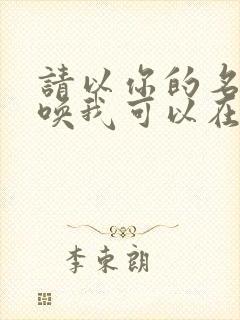 請以你的名
喚我可以在
李束朗